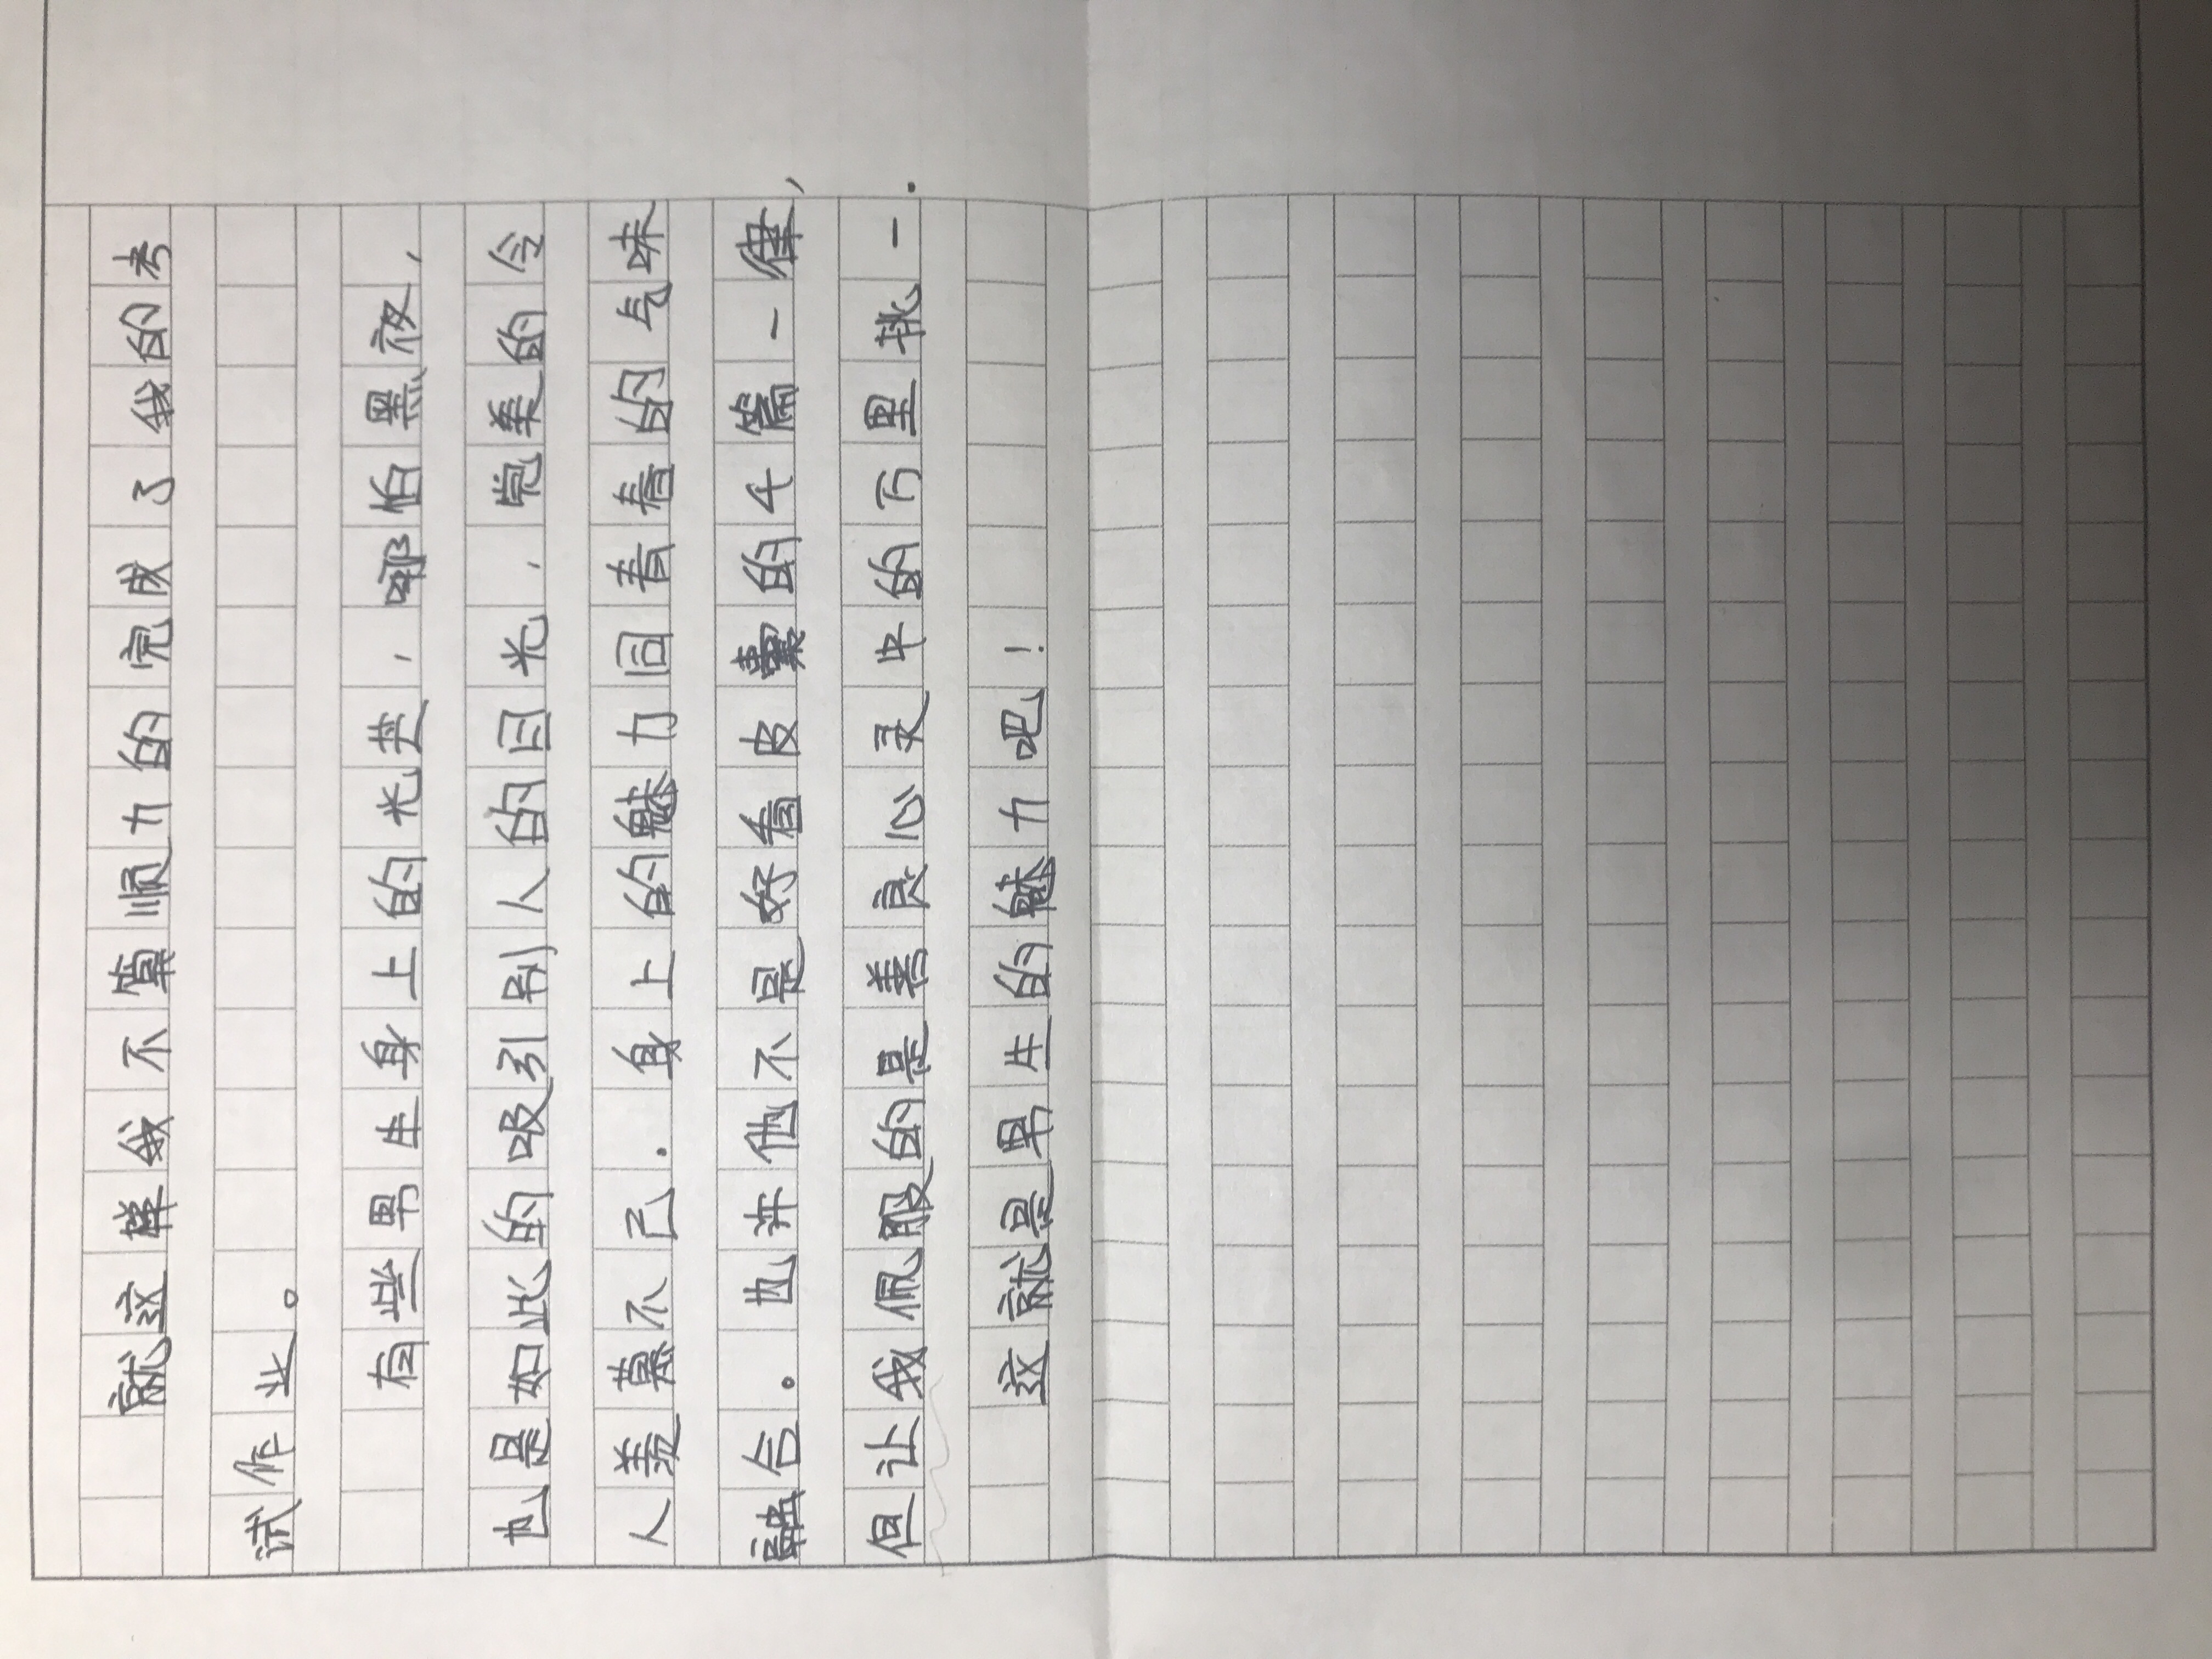 就这样我不算顺力的完成了我的考
试作业。
有些男生身上的光芒，哪怕黑夜，
也是如此的吸引别人的目光，完美的令
人羡慕不己．身上的魅力同春春的气味
融合。也许他不是好看皮囊的千篇一律，
但让我佩服的是善良心灵中的万里挑一．
这就是男生的魅力吧！